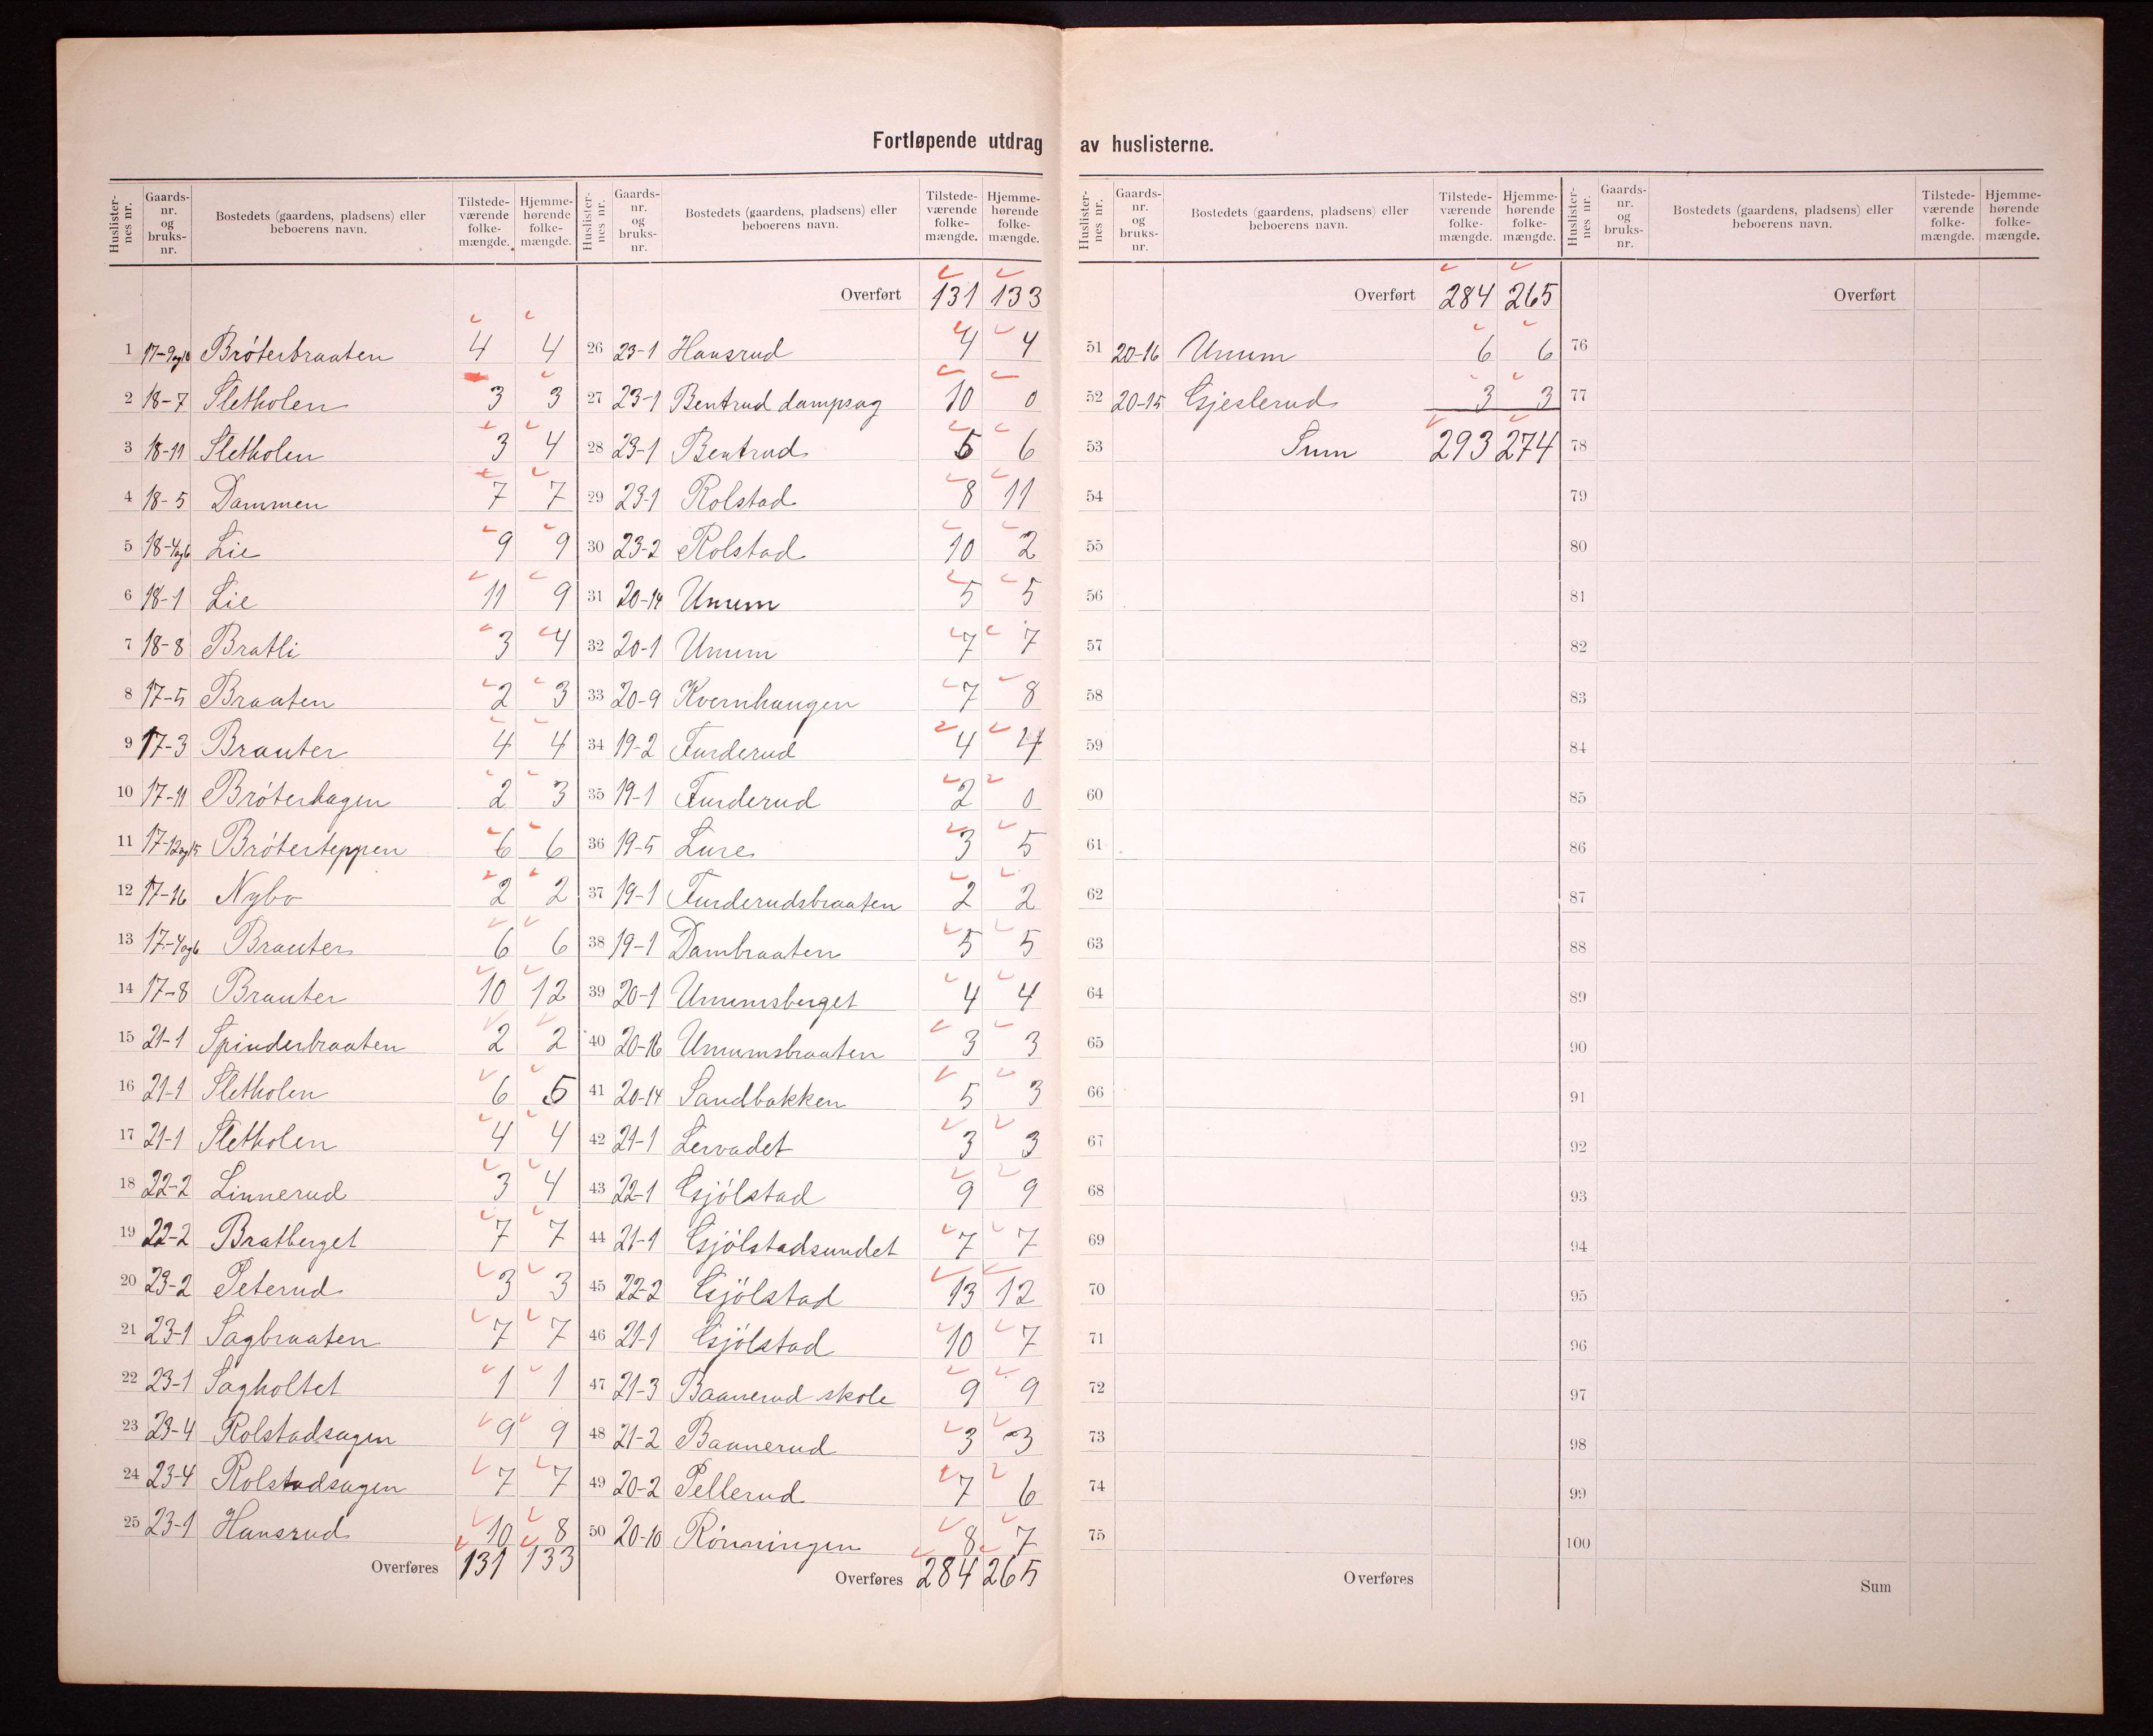 Fortløpende utdrag av huslisterne.
Huslister-nes nr. | Gaards-nr. og bruks-nr. | Bostedets (gaardens, pladsens) eller beboerens navn. | Tilstede-værende folke-mængde. | Hjemme-hørende folke-mængde.
1 17-9og10 Bröterbraaten 4 4
2 18-7 Sletholen 3 3
3 18-11 Sletholen 3 4
4 18-5 Dammen 7 7
5 18-4og6 Lie 9 9
6 18-1 Lie 11 9
7 18-8 Bratli 3 4
8 17-5 Braaten 2 3
9 17-3 Brauter 4 4
10 17-11 Bröterhagen 2 3
11 17-12og15 Bröterteppen 6 6
12 17-16 Nybo 2 2
13 17-4og6 Brauter 6 6
14 17-8 Brauter 10 12
15 21-1 Spinderbraaten 2 2
16 21-1 Sletholen 6 5
17 21-1 Sletholen 4 4
18 22-2 Linnerud 3 4
19 22-2 Bratberget 7 7
20 23-2 Peterud 3 3
21 23-1 Sagbraaten 7 7
22 23-1 Sagholtet 1 1
23 23-4 Rolstadsagen 9 9
24 23-4 Rolstadsagen 7 7
25 23-1 Hansrud 10 8
Overføres 131 133
Huslister-nes nr. | Gaards-nr. og bruks-nr. | Bostedets (gaardens, pladsens) eller beboerens navn. | Tilstede-værende folke-mængde. | Hjemme-hørende folke-mængde.
Overført 131 133
26 23-1 Hansrud 4 4
27 23-1 Bentrud dampsag 10 0
28 23-1 Bentrud 5 6
29 23-1 Rolstad 8 11
30 23-2 Rolstad 10 2
31 20-14 Unum 5 5
32 20-1 Unum 7 7
33 20-9 Kvernhaugen 7 8
34 19-2 Furderud 4 4
35 19-1 Furderud 2 0
36 19-5 Lure 3 5
37 19-1 Furderudsbraaten 2 2
38 19-1 Dambraaten 5 5
39 20-1 Unumsberget 4 4
40 20-16 Unumsbraaten 3 3
41 20-14 Sandbakken 5 3
42 21-1 Lervadet 3 3
43 22-1 Gjölstad 9 9
44 21-1 Gjölstadsundet 7 7
45 22-2 Gjölstad 13 12
46 21-1 Gjölstad 10 7
47 21-3 Baanerud skole 9 9
48 21-2 Baanerud 3 3
49 20-2 Pellerud 7 6
50 20-10 Rönningen 8 7
Overføres 284 265
Huslister-nes nr. | Gaards-nr. og bruks-nr. | Bostedets (gaardens, pladsens) eller beboerens navn. | Tilstede-værende folke-mængde. | Hjemme-hørende folke-mængde.
Overført 284 265
51 20-16 Unum 6 6
52 20-15 Gjeslerud 3 3
53 Sum 293 274
54
55
56
57
58
59
60
61
62
63
64
65
66
67
68
69
70
71
72
73
74
75
Overføres
Huslister-nes nr. | Gaards-nr. og bruks-nr. | Bostedets (gaardens, pladsens) eller beboerens navn. | Tilstede-værende folke-mængde. | Hjemme-hørende folke-mængde.
Overført
76
77
78
79
80
81
82
83
84
85
86
87
88
89
90
91
92
93
94
95
96
97
98
99
100
Sum